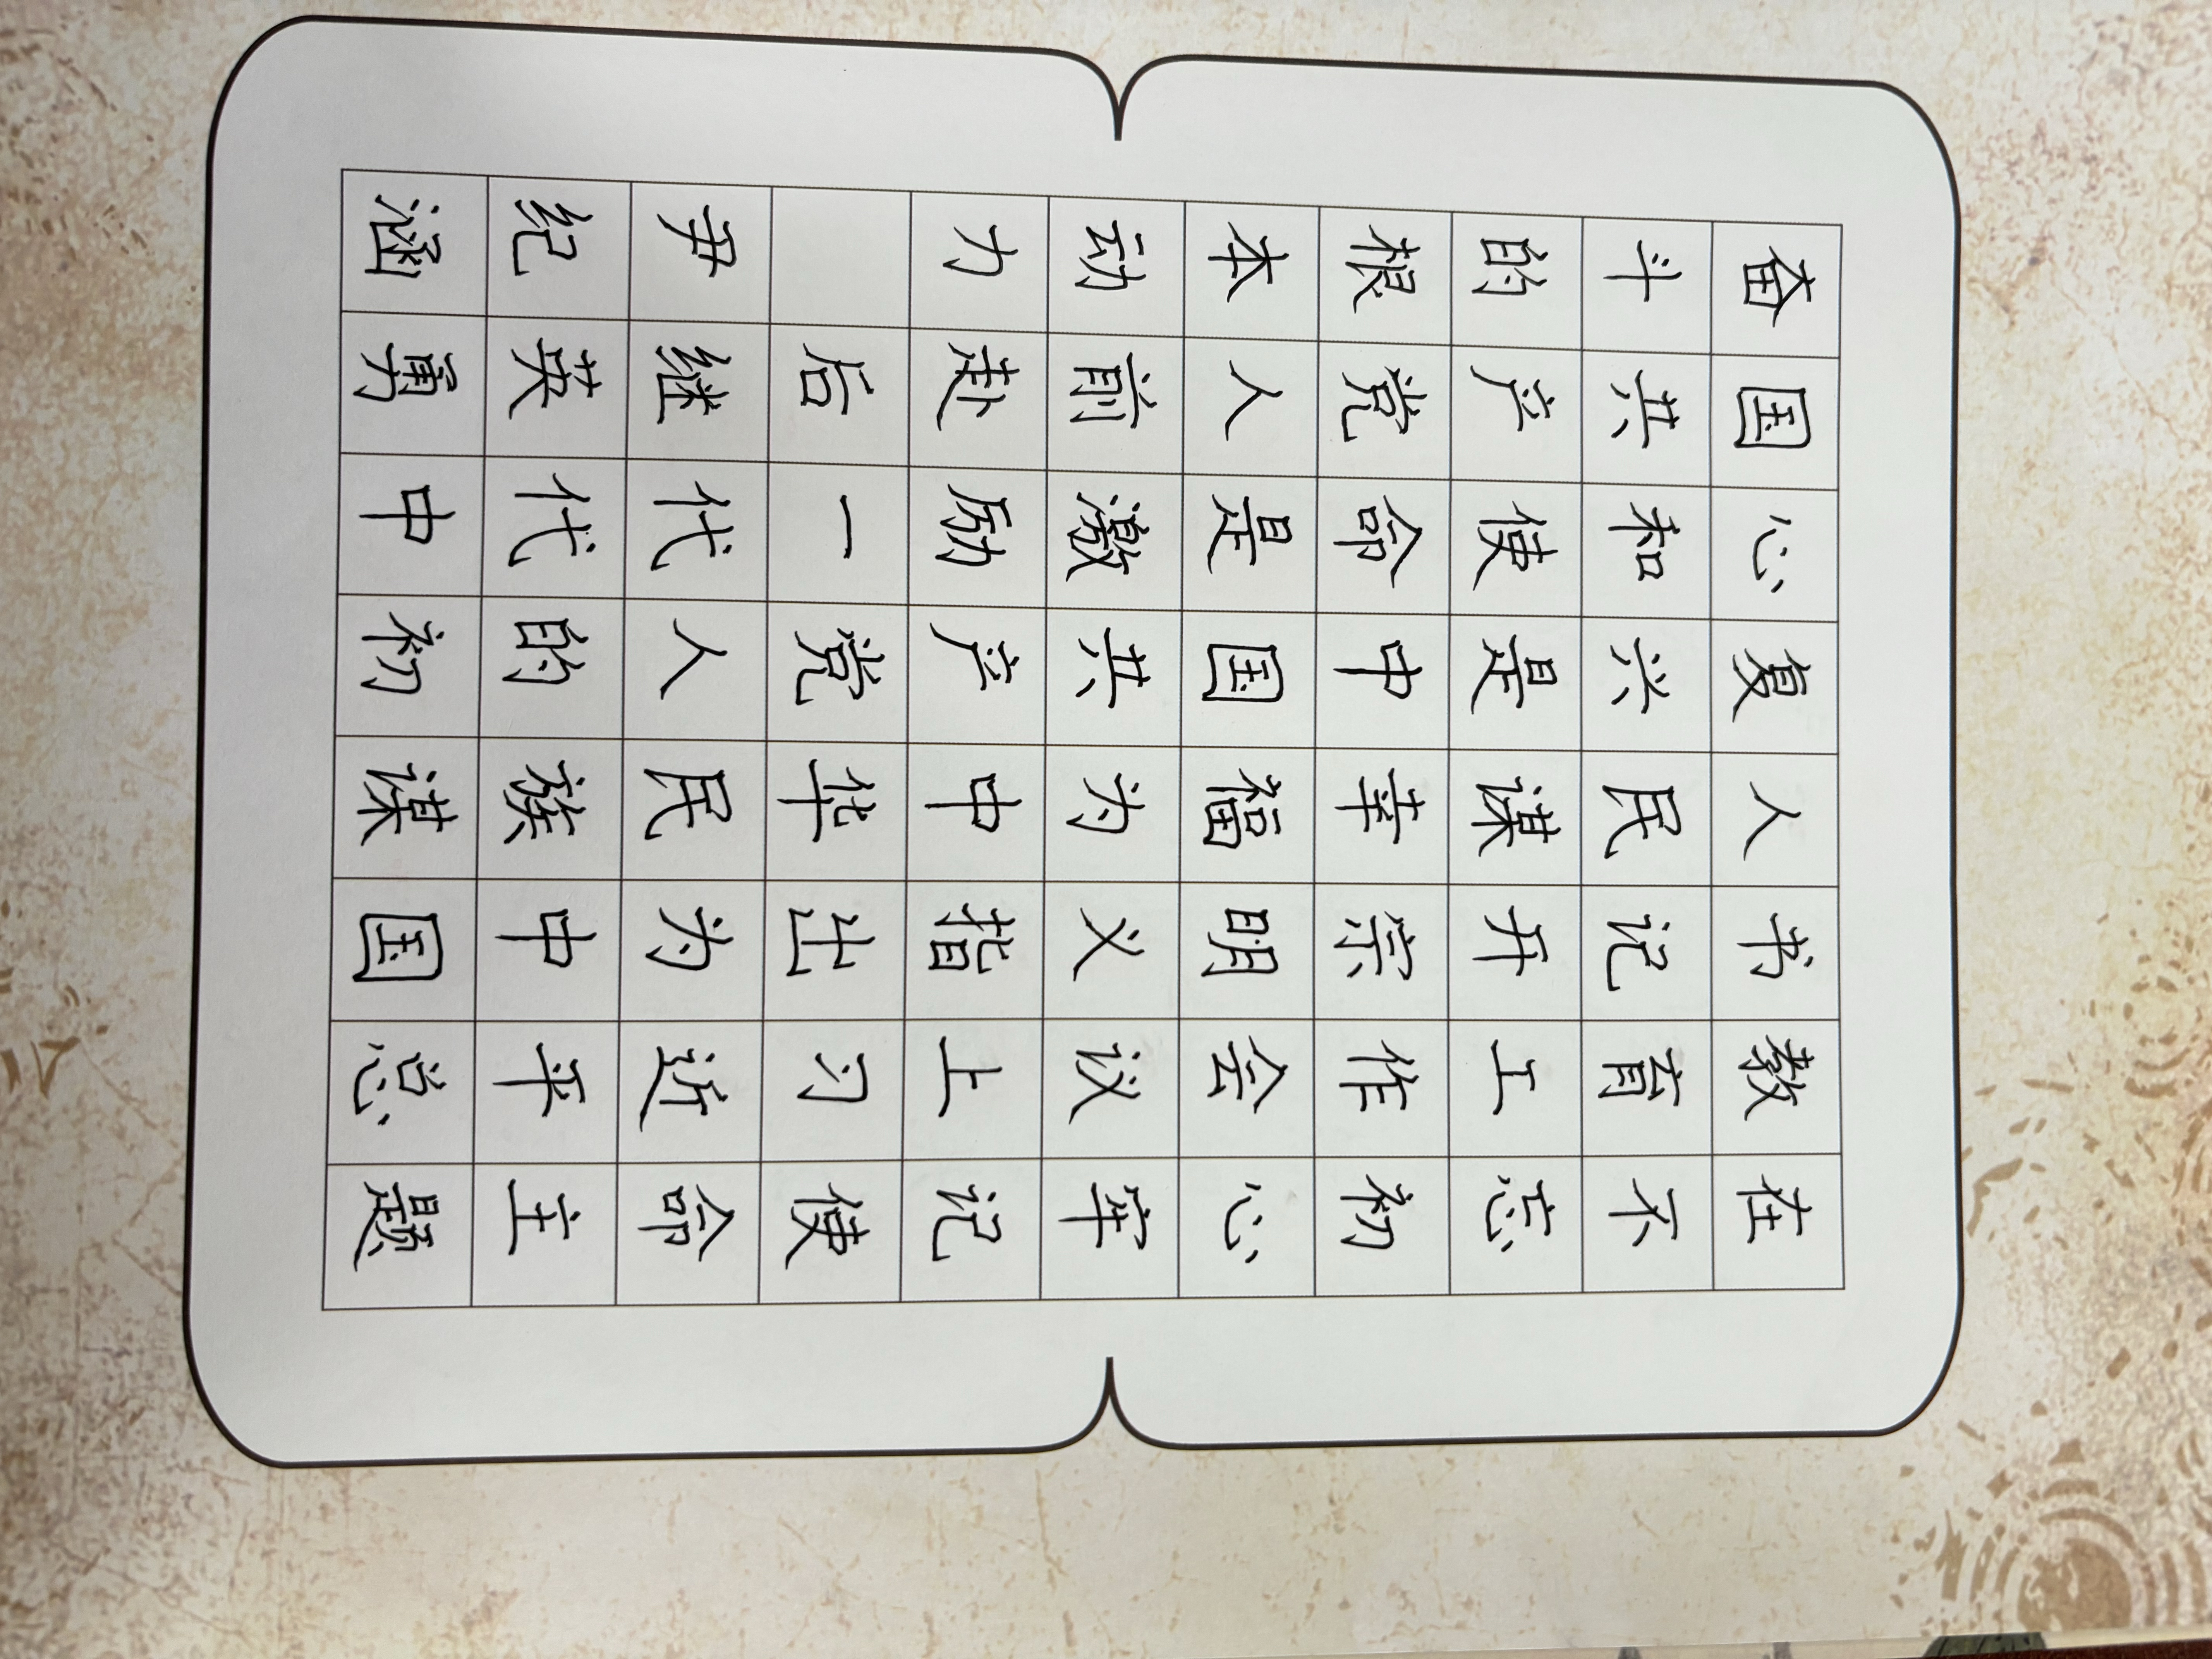 在不忘初心牢记使命主题
教育工作会议上习近平总
书记开宗明义指出为中国
人民谋幸福为中华民族谋
复兴是中国共产党人的初
心和使命是激励一代代中
国共产党人前赴后继英勇
奋斗的根本动力 尹纪涵